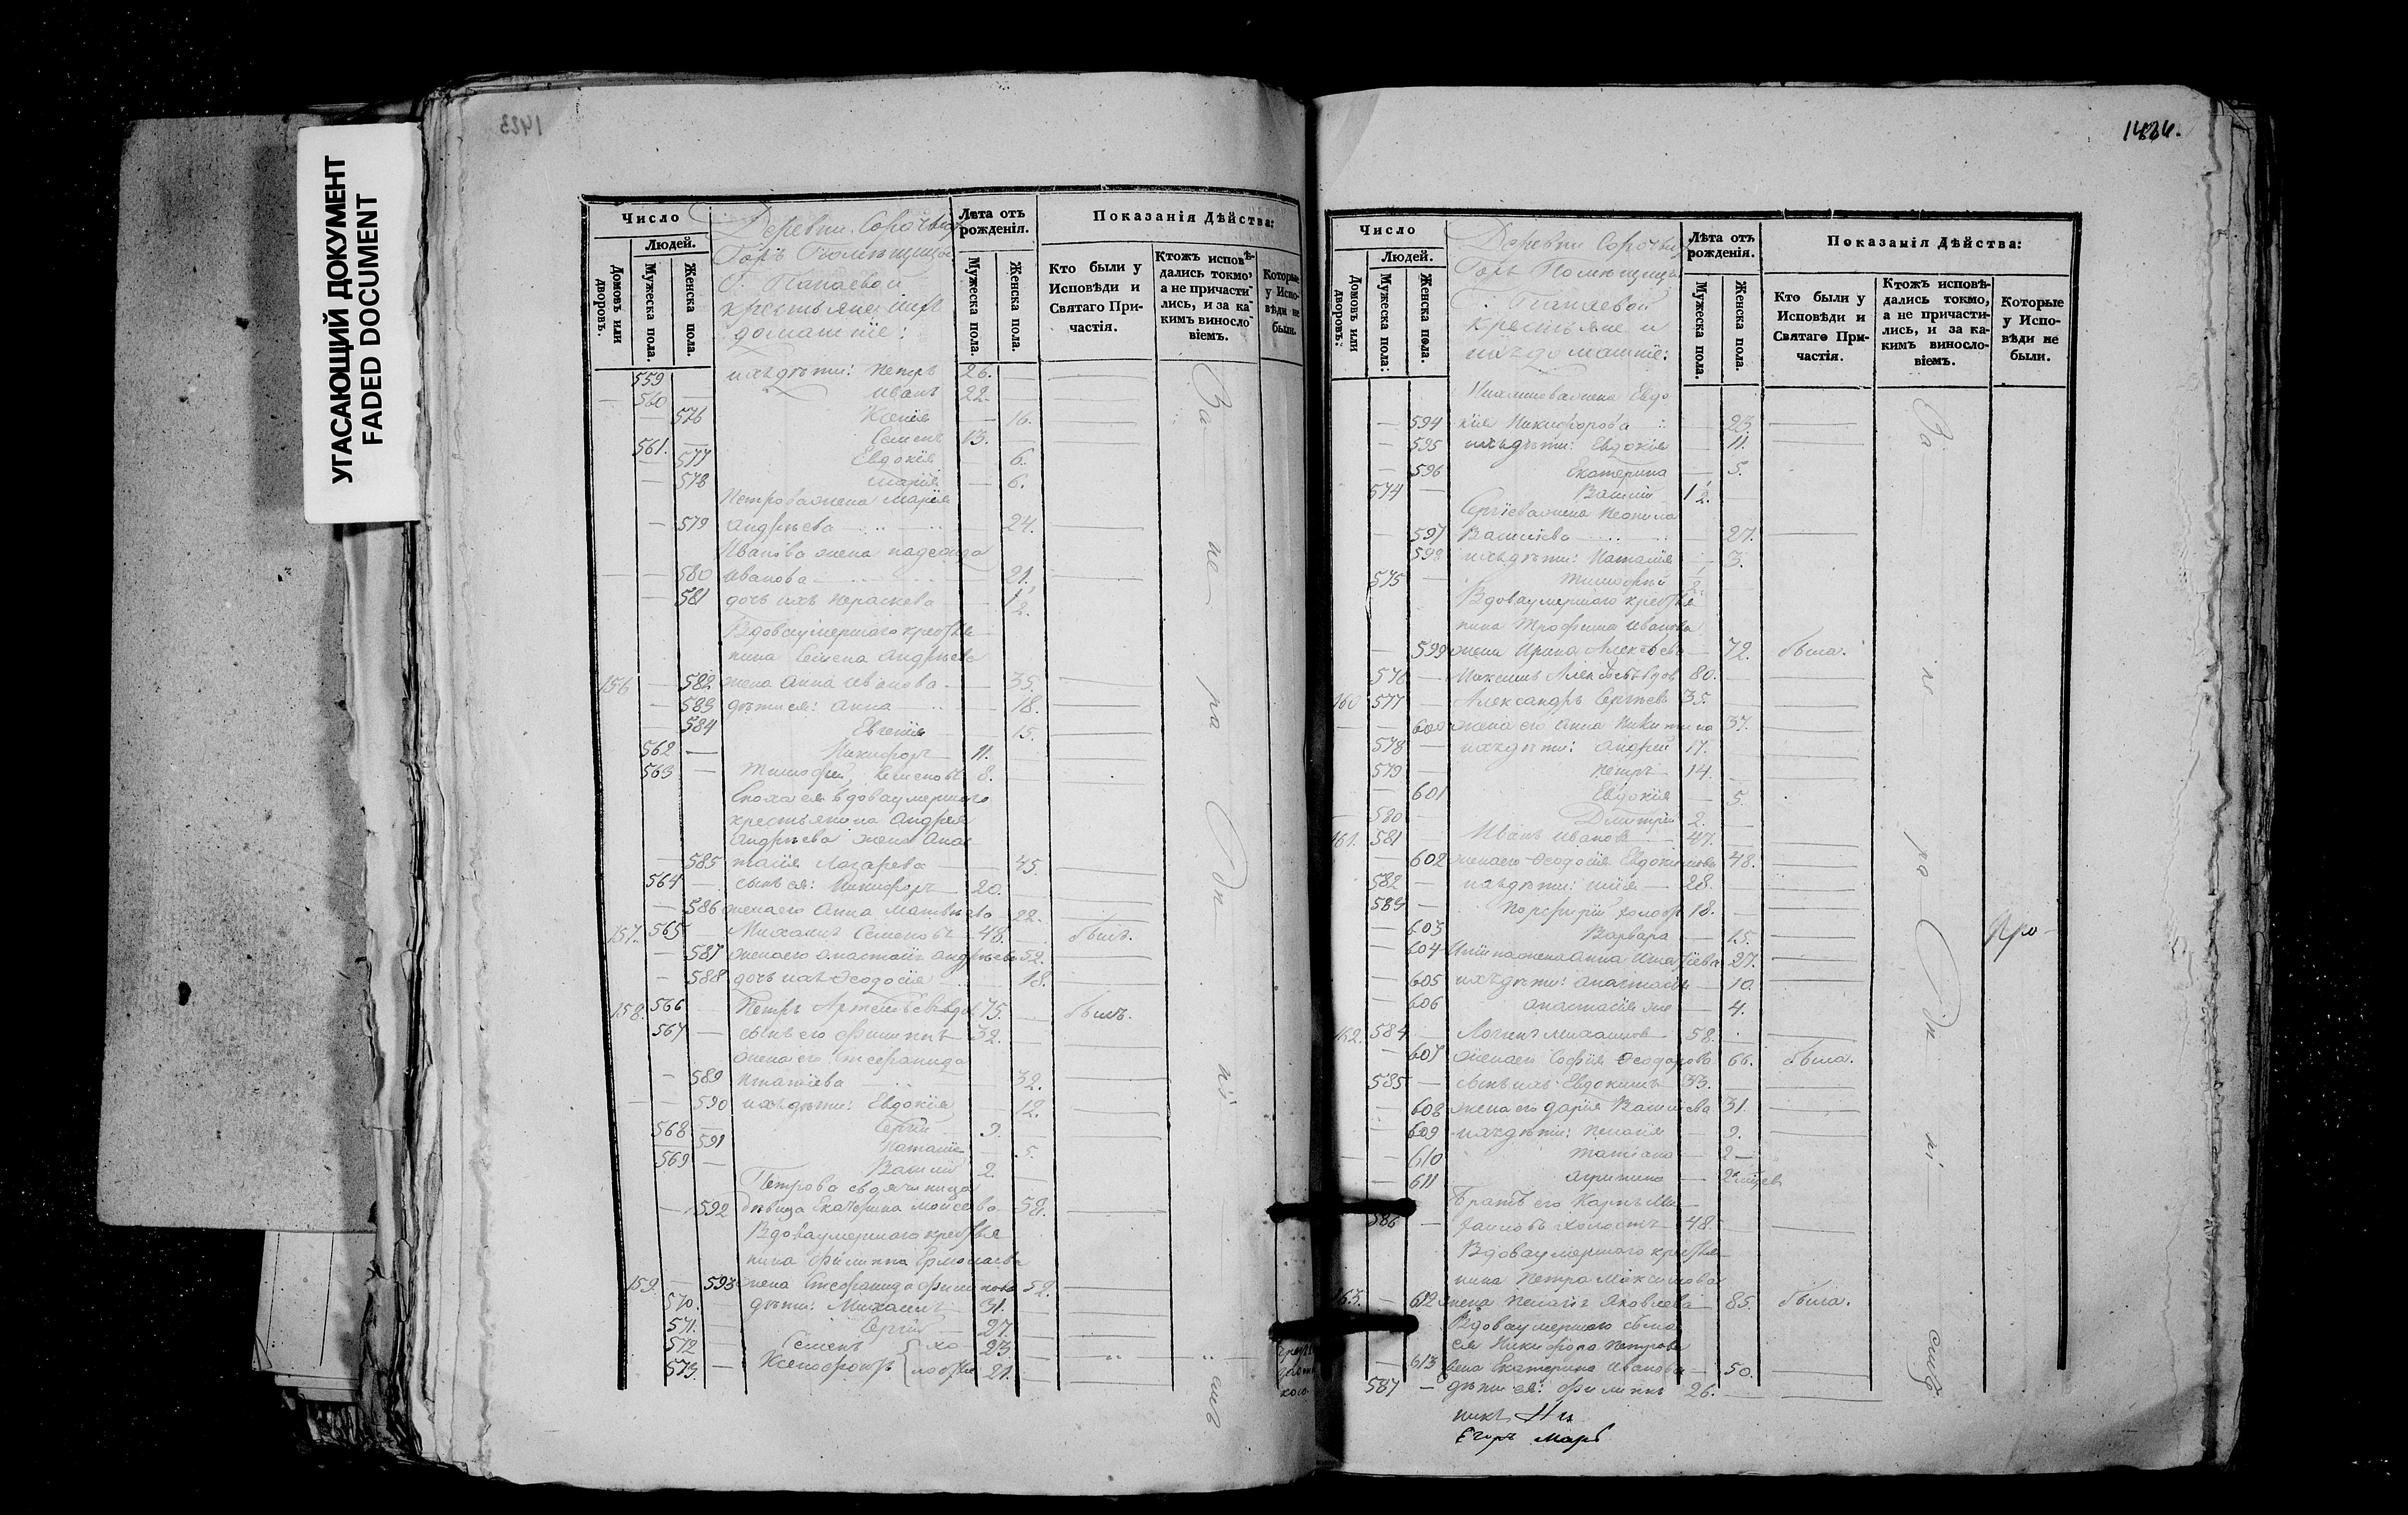 УГАСАЮЩИЙ ДОКУМЕНТ
FADED DOCUMENT
1423
Число
Людей.
Домовъ или дворовъ.
Мужеска пола.
Женска пола.
Деревни Сорочьихъ
Горъ Помѣщицы
Г. Панаевой
крестьяне и ихъ
домашніе:
Лѣта отъ рожденія.
Мужеска пола.
Женска пола.
Показанія Дѣйства:
Кто были у Исповѣди и Святаго При-частія.
Ктожъ исповѣ-дались токмо, а не причасти-лись, и за ка-кимъ виносло-віемъ.
Которые у Испо-вѣди не были.
559 ихъ дѣти: Петръ 26.
560 Иванъ 22.
576 Ксенія 16.
561. Семенъ 13.
577 Евдокія 6.
578 Марія 6.
Петрова жена Марія
579 Андрѣева 24.
Иванова жена Надежда
580 Иванова 21.
581 дочь ихъ Параскева 1/2.
Вдова умершаго крестья
нина Семена Андрѣева
156 582 жена Анна Иванова 35.
583 дѣти ея: Анна 18.
584 Евгенія 15.
562 Никифоръ 11.
563 Тимофей, Семеновъ 8.
Сноха ея вдова умершаго
крестьянина Андрея
Андрѣева жена Анас
585 тасія Лазарева 45.
564 сынъ ея: Никифоръ 20.
586 жена его Анна Матвѣева 22.
157. 565 Михаилъ Семеновъ 48. былъ.
587 жена его Анастасія Андрѣева 52.
588 дочь ихъ Ѳеодосія 18.
158. 566 Петръ Артемьевъ вдов 75. былъ.
567 сынъ его Филиппъ 32.
жена его Стефанида
589 Игнатіева 32.
590 ихъ дѣти: Евдокія 12.
568 Сергій 9.
591 Наталія 5.
569 Василій 2.
Петрова свояченица
592 дѣвица Екатерина Моисеева 58.
Вдова умершаго крестья
нина Филиппа Ермолаева
159. 593 жена Стефанида Филипова 52.
570. дѣти: Михаилъ 31.
571. Сергій 27
572 Семенъ хо 23
573. Ксенофонтъ лосты 21.
За не ра дѣ ні емъ
1424.
Число
Людей.
Домовъ или дворовъ.
Мужеска пола.
Женска пола.
Деревни Сорочьихъ
Горъ Помѣщицы
Г. Панаевой
крестьяне и
ихъ домашніе:
Лѣта отъ рожденія.
Мужеска пола.
Женска пола.
Показанія Дѣйства:
Кто были у Исповѣди и Святаго При-частія.
Ктожъ исповѣ-дались токмо, а не причасти-лись, и за ка-кимъ виносло-віемъ.
Которые у Испо-вѣди не были.
Михаилова жена Евдо
594 кія Никифорова 23.
595 ихъ дѣти: Евдокія 11.
596 Екатерина 5.
574 Василій 1/2.
Сергіева жена Неонила
597 Василіева 27.
598 ихъ дѣти: Наталія 3.
575 Тимофей 1/2.
Вдова умершаго крестья
нина Трофима Иванова
599 жена Ирина Алексѣева 72. была.
576 Максимъ Алексѣевъ вдов 80.
160 577 Александръ Сергѣевъ 35.
600 жена его Анна Никитина 37.
578 ихъ дѣти: Андрей 17.
579 Петръ 14.
601 Евдокія 5.
580 Дмитрій 2.
161. 581 Иванъ Ивановъ 47.
602 жена его Ѳеодосія Евдокимова 48.
582 ихъ дѣти: Илія 28.
583 Порфирій холост 18.
603 Варвара 15.
604 Иліина жена Анна Игнатіева 27.
605 ихъ дѣти: Анастасія 10
606 Анастасія же 4.
162. 584 Логинъ Михаиловъ 58.
607 жена его Софія Ѳеодорова 66. была.
585 сынъ ихъ Евдокимъ 33.
608 жена его Дарія Василіева 31.
609 ихъ дѣти: Пелагія 9.
610 Татіана 2
611 Агрипина
Братъ его Карпъ Ми
586 хаиловъ холостъ 48.
Вдова умершаго крестья
нина Петра Максимова
163. 612 жена Пелагія Яковлева 85. была.
Вдова умершаго сына
ея Никифора Петрова
613 жена Екатерина Иванова 50.
587 дѣти ея: Филиппъ 26.
За не ра дѣ ні емъ
никъ
Егоръ